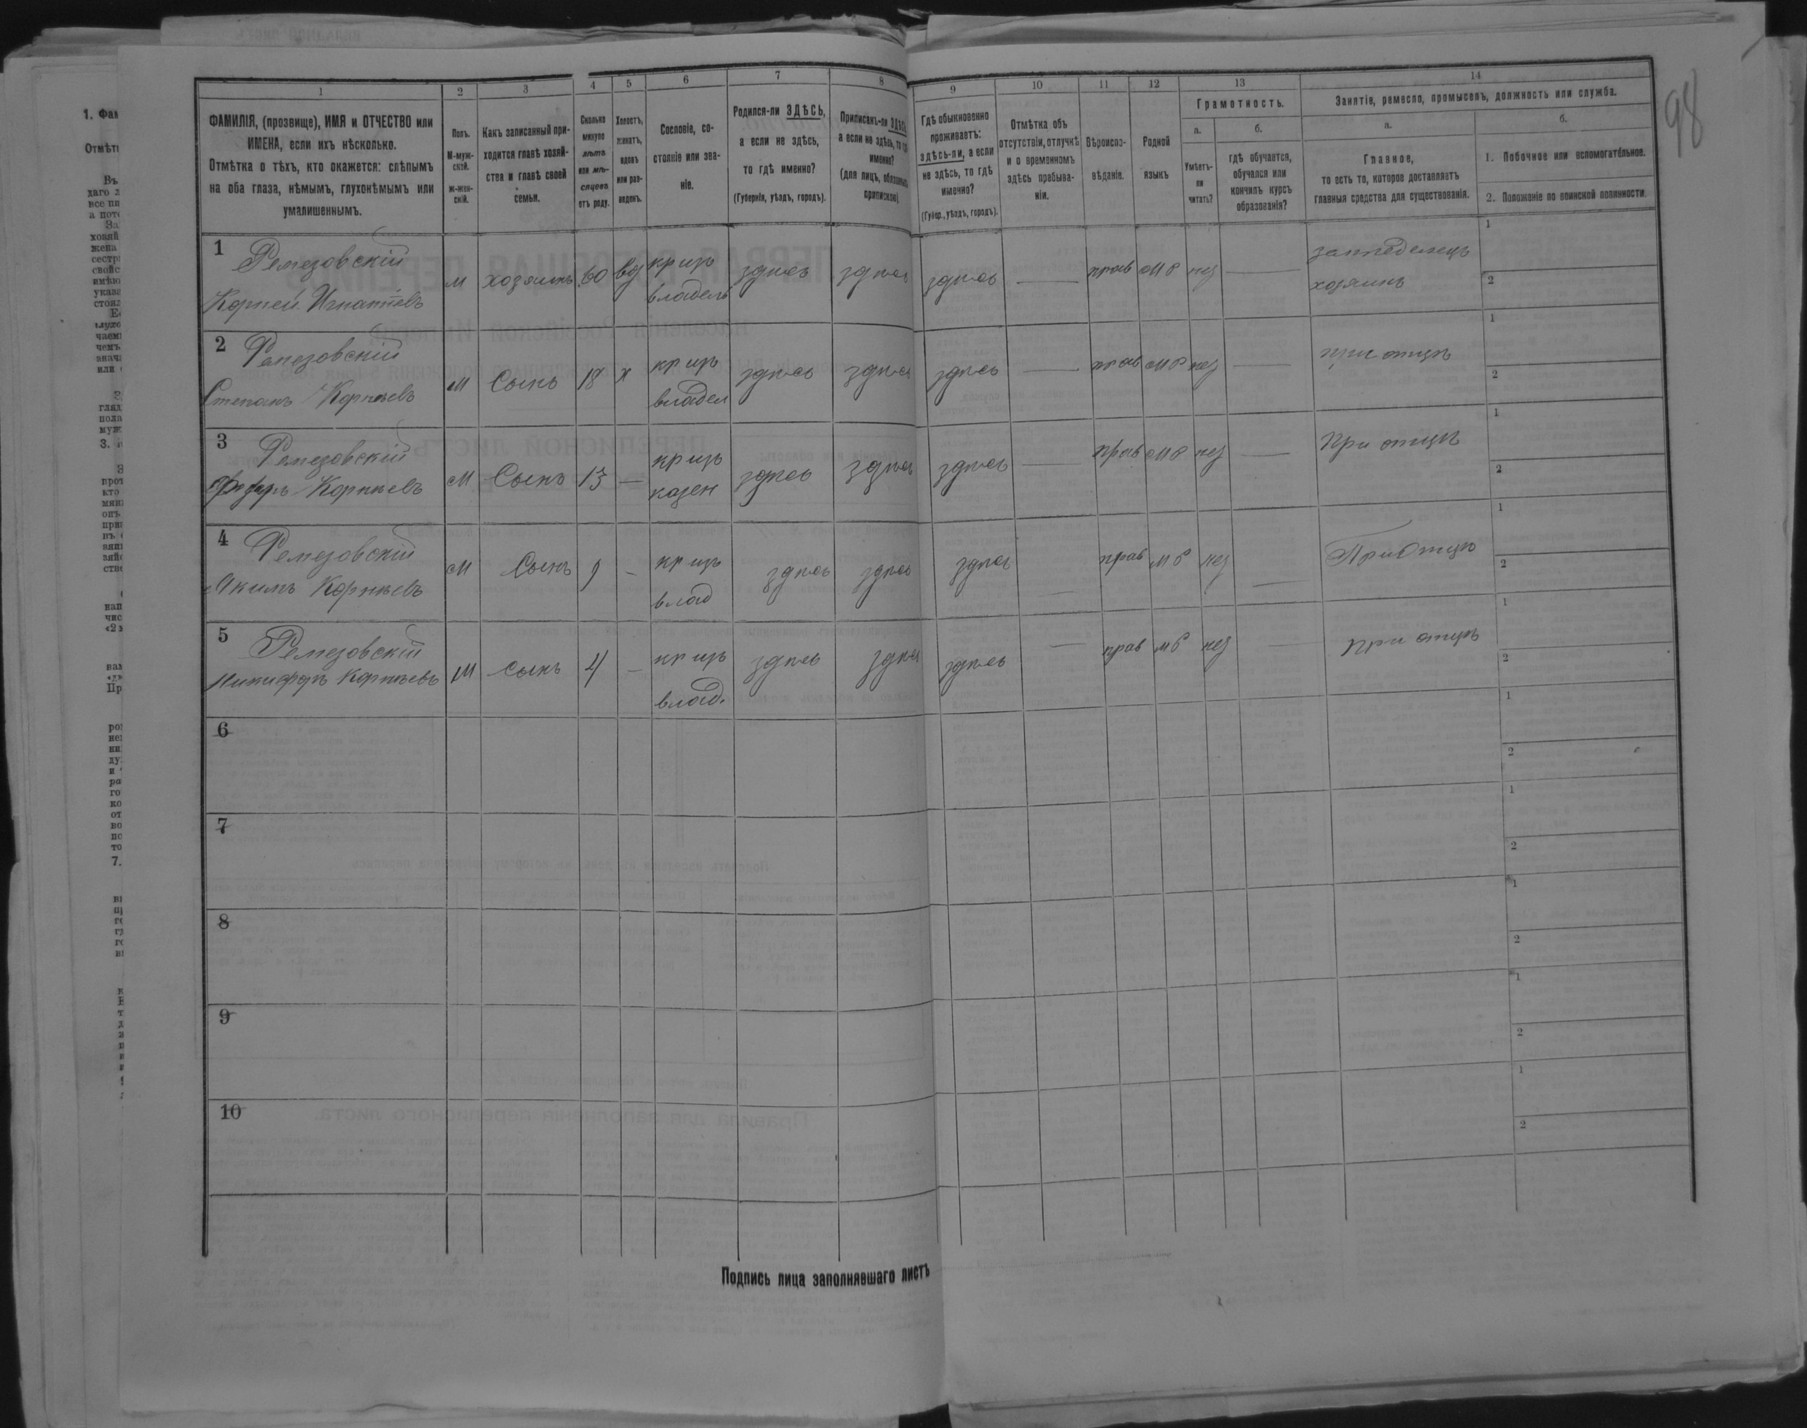 98
1
2
3
4
5
6
7
8
9
10
11
12
13
14
ФАМИЛІЯ, (прозвище), ИМЯ и ОТЧЕСТВО или
ИМЕНА, если ихъ нѣсколько.
Отмѣтка о тѣхъ, кто окажется: слѣпымъ
на оба глаза, нѣмымъ, глухонѣмымъ или
умалишеннымъ.
Полъ.
М-муж-
ской.
ж-жен-
скій.
Какъ записанный при-
ходится главѣ хозяй-
ства и главѣ своей
семьи.
Сколько
минуло
лѣтъ
или мѣ-
сяцевъ
отъ роду.
Холостъ,
женатъ,
вдовъ
или раз-
веденъ.
Сословіе, со-
стояніе или зва-
ніе.
Родился-ли ЗДѢСЬ,
а если не здѣсь,
то гдѣ именно?
(Губернія, уѣздъ, городъ).
Приписанъ-ли ЗДѢСЬ,
а если не здѣсь, то гдѣ
именно?
(для лицъ, обязанныхъ
припискою)
Гдѣ обыкновенно
проживаетъ:
здѣсь-ли, а если
не здѣсь, то гдѣ
именно?
(Губер., уѣздъ, городъ).
Отмѣтка объ
отсутствіи, отлучкѣ
и о временномъ
здѣсь пребыва-
ніи.
Вѣроиспо-
вѣданіе.
Родной
языкъ
Грамотность.
а.
Умѣетъ-
ли
читать?
б.
гдѣ обучается,
обучался или
кончилъ курсъ
образованія?
Занятіе, ремесло, промыселъ, должность или служба.
а.
Главное,
то есть то, которое доставляетъ
главныя средства для существованія.
б.
1. Побочное или вспомогательное.
2. Положеніе по воинской повинности.
1 Ремезовскій
Корней Игнатіевъ
м хозяинъ 60 вд кр изъ
владель
здѣсь здѣсь здѣсь — прав мр нез —
хозяинъ
2 Ремезовскій
Степанъ Корнѣевъ
м Сынъ 18 х кр изъ
владел
здѣсь здѣсь здѣсь — прав мр нез —
при отцѣ
3 Ремезовскій
Корнѣевъ
м Сынъ 13 — кр изъ
казен
здѣсь здѣсь здѣсь — прав мр нез —
При отцѣ
4 Ремезовскій
Якимъ Корнѣевъ
м Сынъ 9 — кр изъ
влад
здѣсь здѣсь здѣсь — прав мр нез —
При Отцѣ
5 Ремезовскій
Никифоръ Корнѣевъ
м сынъ 4 — кр изъ
влад.
здѣсь здѣсь здѣсь — прав мр нез —
При отцѣ
6
7
8
9
10
Подпись лица заполнявшаго листъ